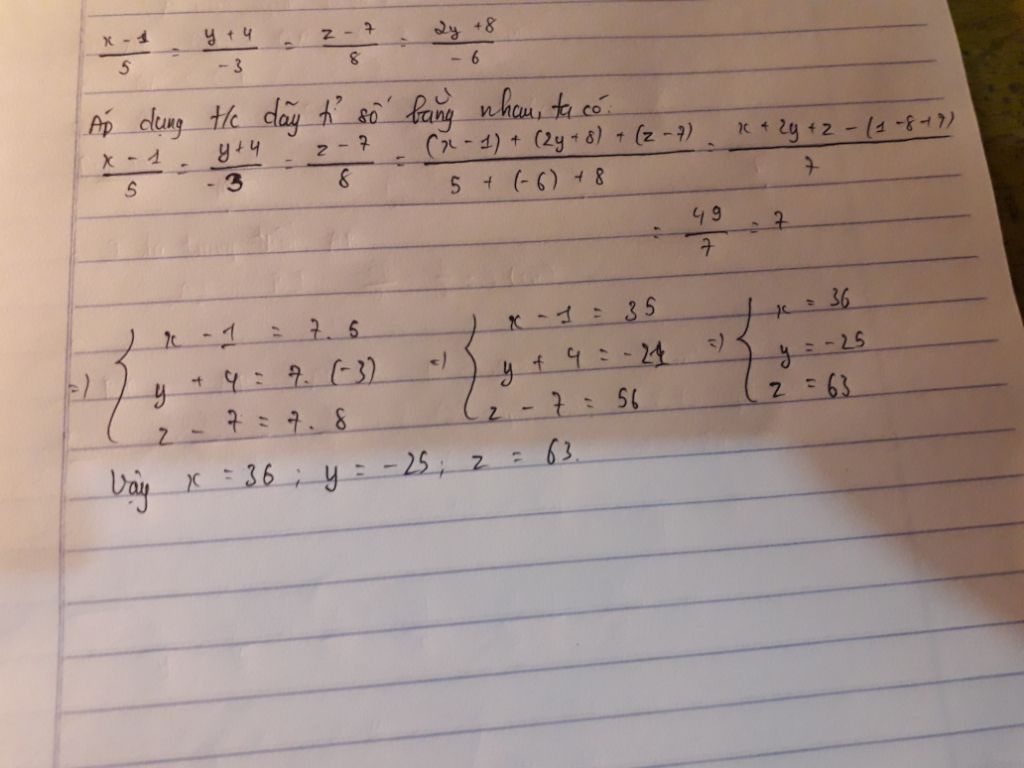 x - 1/5 = y + 4/-3 = z - 7/8 = 2y + 8/-6
Áp dung t/c dãy tỉ số bằng nhau, ta có:
x - 1/5 = y + 4/-3 = z - 7/8 = (x - 1) + (2y + 8) + (z - 7)/5 + (-6) + 8 = x + 2y + z - (1 - 8 + 7)/7
= 49/7 = 7
=) { x - 1 = 7. 5 =) { x - 1 = 35 =) { x = 36
y + 4 = 7. (-3) y + 4 = -21 y = -25
z - 7 = 7. 8 z - 7 = 56 z = 63
Vậy x = 36 ; y = -25; z = 63.